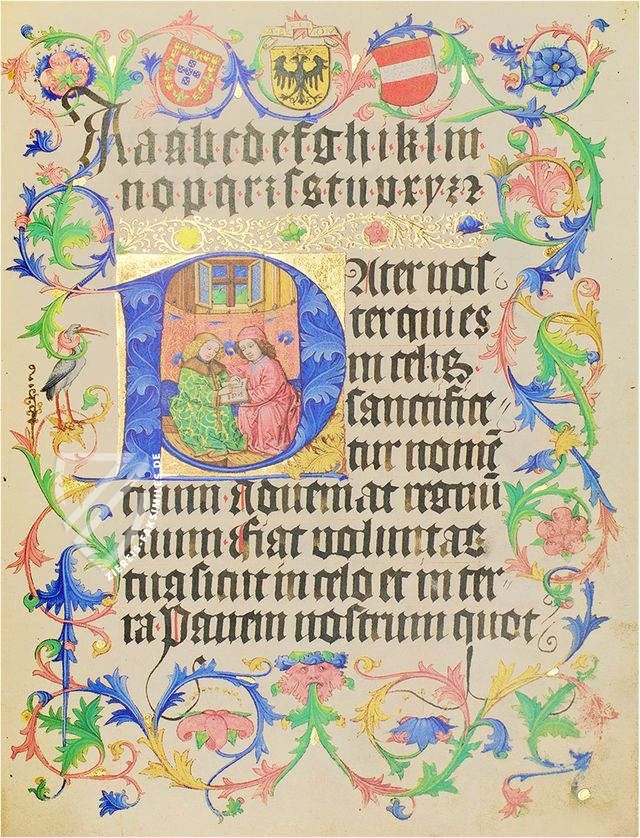 A E I O V
A a a b c d e f g h i k l m
n o p q r z s s t u v x y z 2
PAter nos-
ter qui es
in celis
sanctifice
tur nomē
tuum. Adueniat regnū
tuum. fiat voluntas
tua sicut in celo et in ter
ra. Panem nostrum quot
ZIEREIS-FAKSIMILES.DE